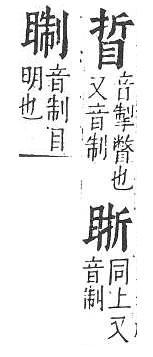 䀿
音掣瞥也
又音制
同上又
音制
音制目
明也